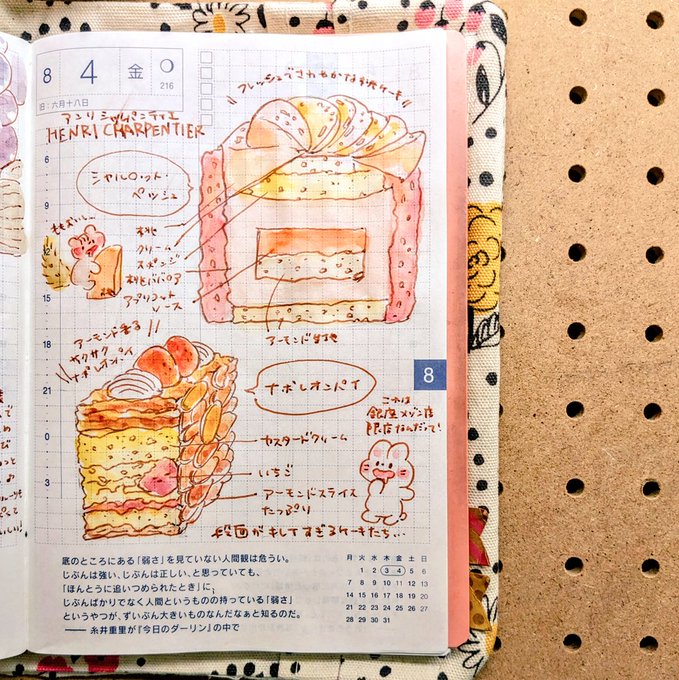 8 4 金 216
旧:六月十八日
アンリ シャルパンティエ
HENRI CHARPENTIER
フレッシュでさわやかな桃ケーキ
シャルロット・
ペッシュ
桃
クリーム
スポンジ
桃ババロア
アプリコット
ソース
アーモンド生地
アーモンド香る
サクサク
ナポレオンパイ
ナポレオンパイ
これは
銀座メゾン店
限定なんだって!
カスタードクリーム
いちご
アーモンドスライス
たっぷり
断面がキレイすぎるケーキたち…
6
9
12
15
18
21
0
3
8
底のところにある「弱さ」を見ていない人間観は危うい。
じぶんは強い、じぶんは正しい、と思っていても、
「ほんとうに追いつめられたとき」に、
じぶんばかりでなく人間というものの持っている「弱さ」
というやつが、ずいぶん大きいものなんだなぁと知るのだ。
── 糸井重里が『今日のダーリン』の中で
月 火 水 木 金 土 日
1 2 3 4 5 6
7 8 9 10 11 12 13
14 15 16 17 18 19 20
21 22 23 24 25 26 27
28 29 30 31